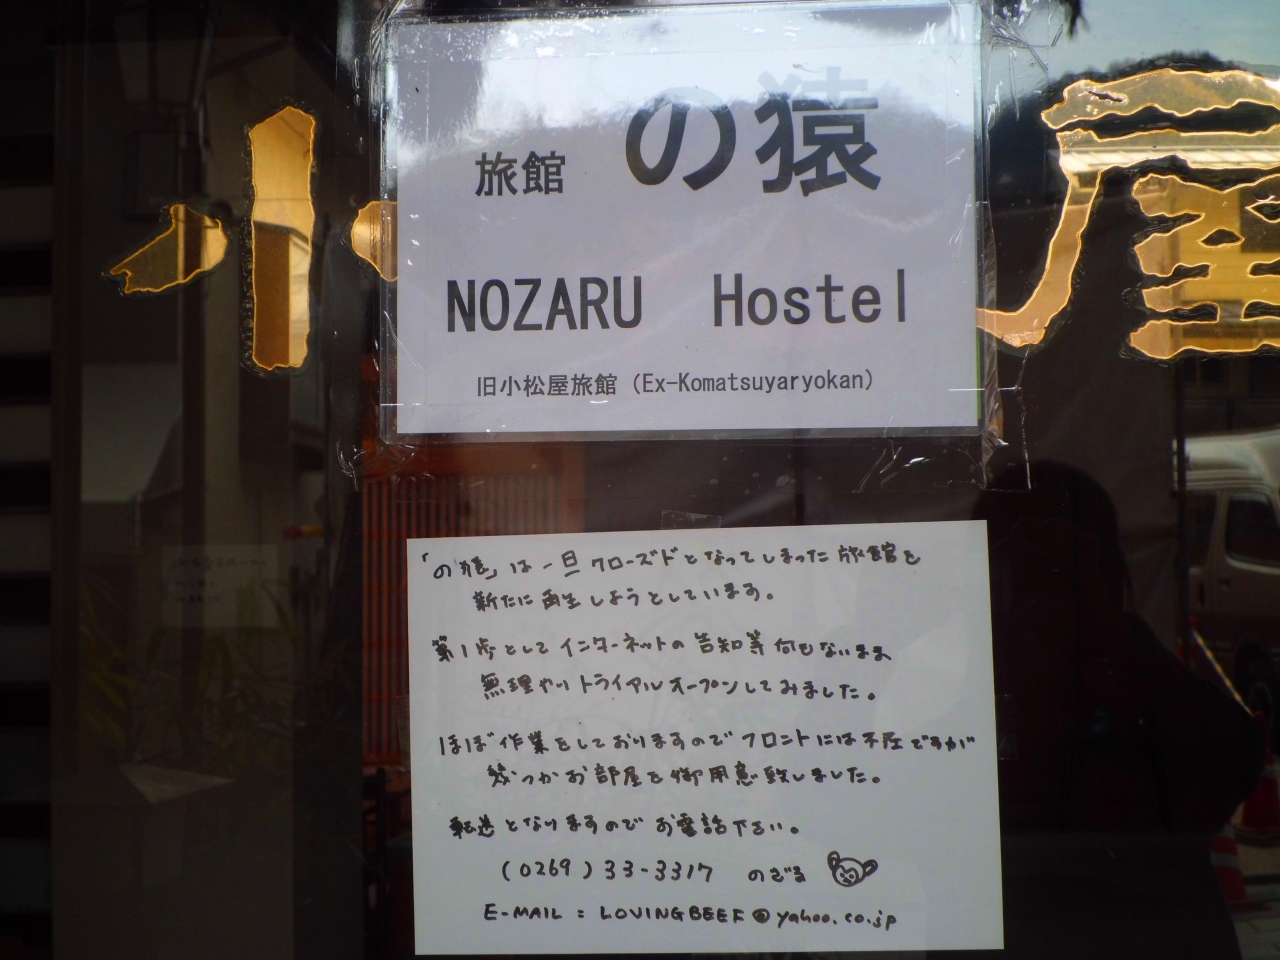 小 屋
旅館 の猿
NOZARU Hostel
旧小松屋旅館 (Ex-Komatsuyaryokan)
「の猿」は一旦クローズドとなってしまった旅館を
新たに再生しようとしています。
第1歩としてインターネットの告知等何もないまま
無理やりトライアルオープンしてみました。
ほぼ作業をしておりますのでフロントには不在ですが
幾つかお部屋を御用意致しました。
転送となりますのでお電話下さい。
(0269)33-3317 のざる
E-MAIL : LOVINGBEEF@yahoo.co.jp